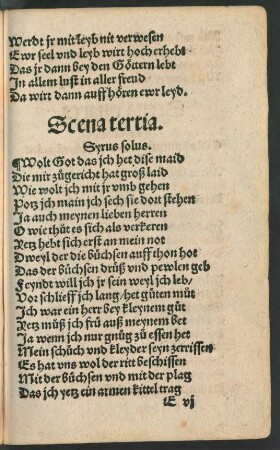 Werdt jr mit leyb nit verwesen
Ewr seel vnd leyb wirt hoch erhebt
Das jr dann bey den Göttern lebt
In allem lust in aller freud
Da wirt dann auff hören ewr leyd.
Scena tertia.
Syrus solus.
¶Wolt Got das jch het dise maid
Die mir zügericht hat groß laid
Wie wolt jch mit jr vmb gehen
Potz jch main jch sech sie dort stehen
Ja auch meynen lieben herren
O wie thüt es sich als verkeren
Retz hebt sich erst an mein not
Dweyl der die büchsen auff thon hot
Das der büchsen drüß vnd pewlen geb
Feyndt will jch jr sein weyl jch leb/
Vor schlieff jch lang/het güten müt
Jch war ein herr bey kleynem güt
Retz müß jch frü auß meynem bet
Ja wenn jch nur gnüg zü essen het
Mein schüch vnd kleyder seyn zerrissen
Es hat vns wol der ritt beschissen
Mit der büchsen vnd mit der plag
Das jch yetz ein armen kittel trag
E vj